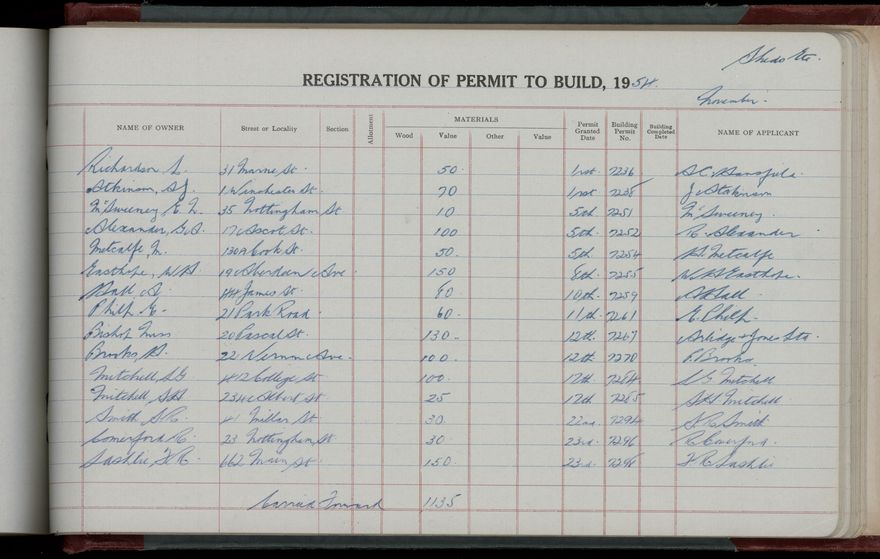 Sheds Etc.
REGISTRATION OF PERMIT TO BUILD, 1954.
November.
NAME OF OWNER Street or Locality Section Allotment MATERIALS Permit Granted Date Building Permit No. Building Completed Date NAME OF APPLICANT
Wood Value Other Value
Richardson L. 31 Marne St. 50. 1st. 7236
Atkinson, S.J. 1 Winchester St. 70 1st 7238 J. Atkinson
McSweeney E. N. 35 Nottingham St 10 5th 7251 McSweeney.
Alexander, G.A. 17 Ascot St. 100 5th. 7252 R. Alexander
Metcalfe, M. 130A Cook St. 50. 5th. 7254 Metcalfe
Easthope, W.H. 19 Aberdeen Ave. 150 8th. 7255 W.H. Easthope.
Hall A. 44 James St. 10th. 7259 Hall
Philp E. 21 Park Road 60. 11th. 7261 E. Philp.
Bishop Miss 20 Pascal St. 130. 12th. 7267 Arlidge & Jones Ltd.
Brooks, 22 Vernon Ave. 100. 12th 7270 Brooks
Mitchell, S.G. 412 College St 100. 17th. 7284 S.G. Mitchell
Mitchell, S.H. 234 Albert St 25 17th 7285 S.H. Mitchell
Smith 41 Millar St 30. 22nd. 7294 Smith
Comerford R. 23 Nottingham St 30. 23rd. 7296 R. Comerford.
Sashlie, F.R. 662 Main St. 150. 23rd. 7298 F R Sashlie
Carried Forward 1135